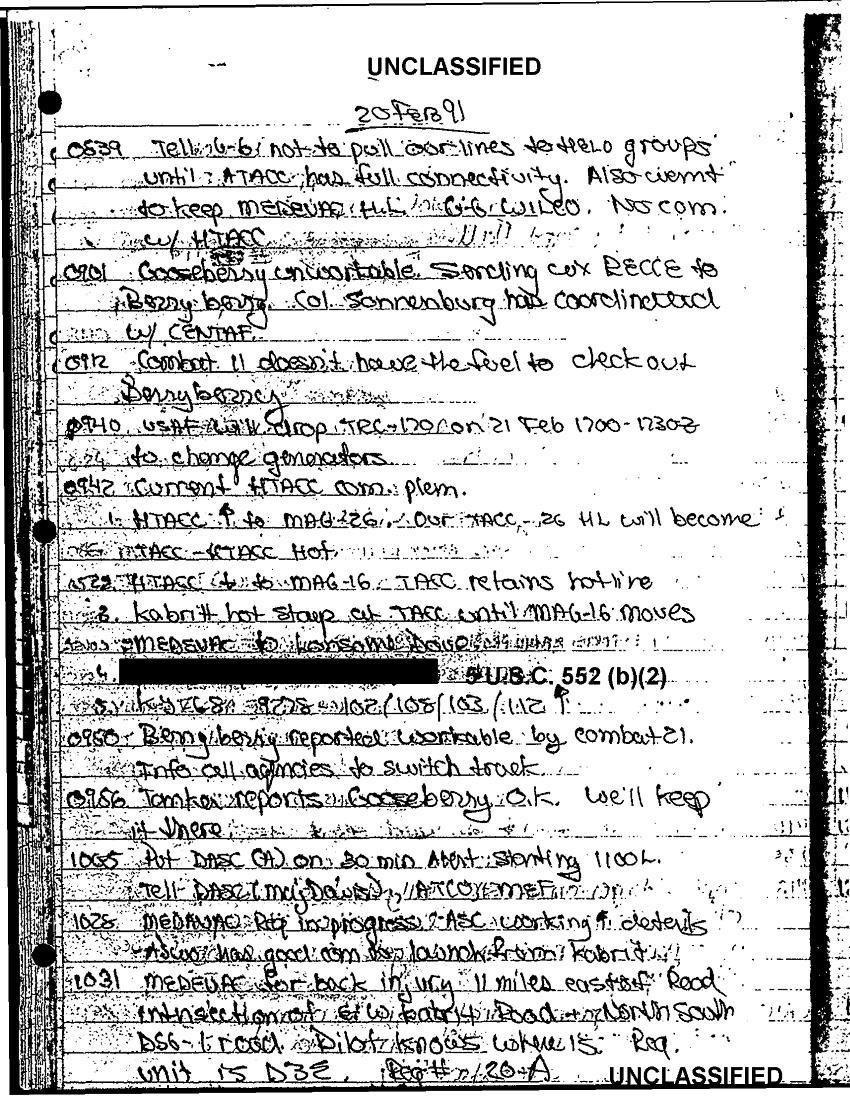 UNCLASSIFIED
20 FEB 91
0839 Tell G-6 not to pull our lines to Helo groups
until ATACC has full connectivity. Also
to keep MEDEVAC H.L. G-6 WILCO. No com.
w/ HTACC
0901 Gooseberry unworkable Sending RECCE to
Berryberry. Col. Sonnenburg has coordinated
w/ CENTAF
0912 Combat 11 doesn't have the fuel to check out
Berryberry
0940 USAF will drop TRC-170 on 21 Feb 1200-1230Z
to change generators
0942 Current HTACC com. plem.
1. HTACC ↑ to MAG-26. Our TACC-26 HL will become
TACC-HTACC Hot
2. HTACC to MAG-16. TACC retains hotline
3. Kabrit hot stays at TACC until MAG-16 moves
MEDEVAC to Lonsome Dove
4. 5 U.S.C. 552 (b)(2)
5. 102/108/103/112 ↑
0950 Berryberry reported workable by combat 21.
Info all agencies to switch track
0956 reports Gooseberry O.K. We'll keep
it there
1005 Put DASC (A) on 30 min Alert starting 1100L.
Tell DASC (Maj Davis), ATCO, MEF
1028 MEDAVAC Req in progress ASC working ↑ details
has good com to launch from Kabrit
1031 MEDEVAC for back injury 11 miles east of Road
intersection of E W Kabrit Road + North South
road Pilot knows where is. Req.
unit is D3E. Req # 20-A
UNCLASSIFIED